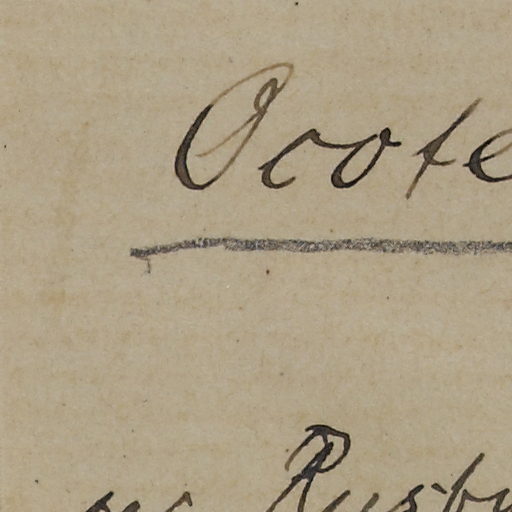 Ocote
Rusby